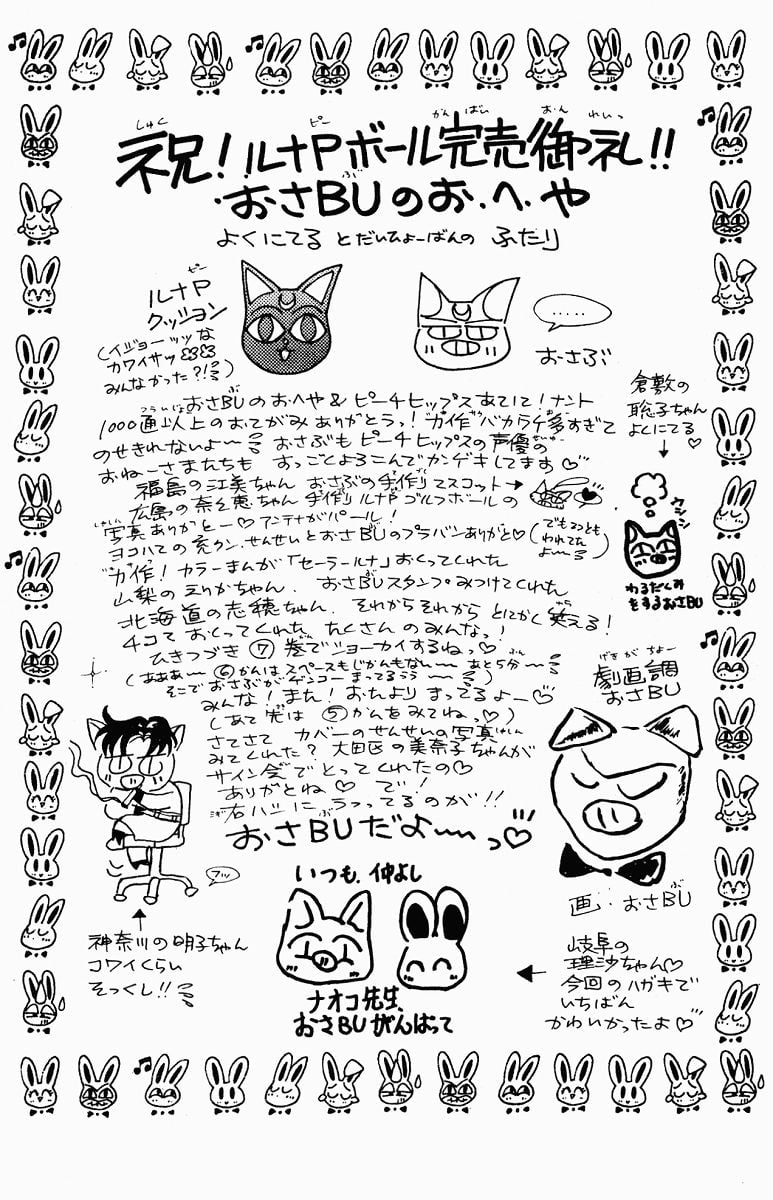 祝！ルナPボール完売御礼!!
おさBUのお.へ.や
よくにてる とだいひょーばんの ふたり
ルナP
クッション
(イジョーッッな
カワイサッ
みんなかった？!)
.....
おさぶ
倉敷の
聡子ちゃん
よくにてる
おさBUのおへや＆ピーチヒップスあてに！ナント
1000通以上のおてがみありがとうっ！力作バカラチ多すぎて
のせきれないよ〜 おさぶもピーチヒップスの声優の
おねーさまたちも おっごくよろこんでカンゲキしてます♡
福島の江美ちゃん おさぶの手作りマスコット→
広島の奈々恵ちゃん 手作りルナPゴルフボールの
写真ありがとー♡アンテナがパール！
ヨコハマの充クン、せんせいとおさBUのプラバンありがと♡
(でも2コとも
われてた
よー)
クックッ
わるだくみ
をするおさBU
力作！カラーまんが「セーラールナ」おくってくれた
山梨のえりかちゃん、おさBUスタンプみつけてくれた
北海道の志穂ちゃん、それからそれから とにかく笑える！
チコておくってくれた たくさんのみんなっ！
ひきつづき ⑦ 巻でショーカイするねっ♡
(あああ〜 ⑥かんはスペースもじかんもない〜 あと5分〜
そこでおさぶがゲンコーまってるうう〜)
みんな！また！おたよりまってるよー♡
(あて先は ⑤かんをみてねっ♡)
さてさて カバーのせんせいの写真
みてくれた？ 大田区の美奈子ちゃんが
サイン会でとってくれたの♡
ありがとね♡ で！
右ハシにうつってるのが!!
おさBUだよ〜っ♡
劇画調
おさBU
画：おさBU
フッ
神奈川の明子ちゃん
コワイくらい
そっくし!!
いつも、仲よし
ナオコ先生、
おさBUがんばって
岐阜の
理沙ちゃん♡
今回のハガキで
いちばん
かわいかったよ♡